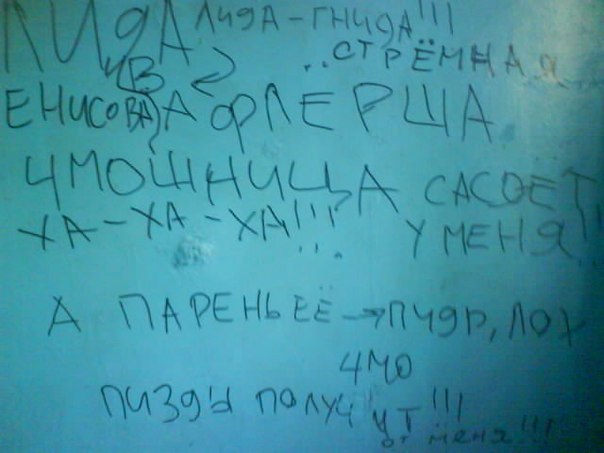 ЛИдА ЛИдА-ГНИдА!!!
..СТРЁМНАЯ
ЧВ
ЕНИСОВА А ФЛЁРША
ЧМОШНИЦА САСОЕТ
ХА-ХА-ХА!!!... У МЕНЯ!!
А ПАРЕНЬ ЕЁ → ПИдР, ЛОХ
ЧМО
ПИЗдЫ ПОЛУЧИТ!!!
от меня!!!